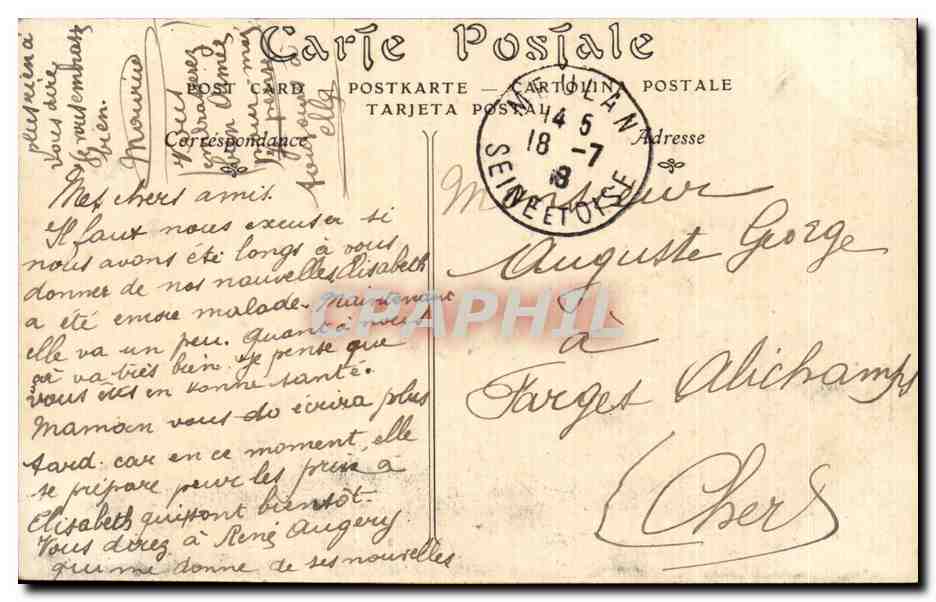 Carte Postale
POST CARD — POSTKARTE — CARTOLINA POSTALE
TARJETA POSTAL
Correspondance
Adresse
MEULAN
14 5
18 -7
8
SEINE ET OISE
CPAPHIL
Mes chers amis.
Il faut nous excuser si
nous avons été longs à vous
donner de nos nouvelles, Elisabeth
a été encore malade. Maintenant
elle va un peu. Quant à nous
ça va très bien. Je pense que
vous êtes en bonne santé.
Maman vous do écrira plus
tard. car en ce moment, elle
se prépare pour les prix à
Elisabeth quissont bientôt.
Vous direz à René Augery
qui me donne de ses nouvelles
plus rien à
vous dire
vous embrasse
bien.
Maurice
Vous
embrasserez
bon Aimé
pour moi
Je pense
toujours à
elle
Monsieur
Auguste George
à
Farges Alichamps
(Cher)